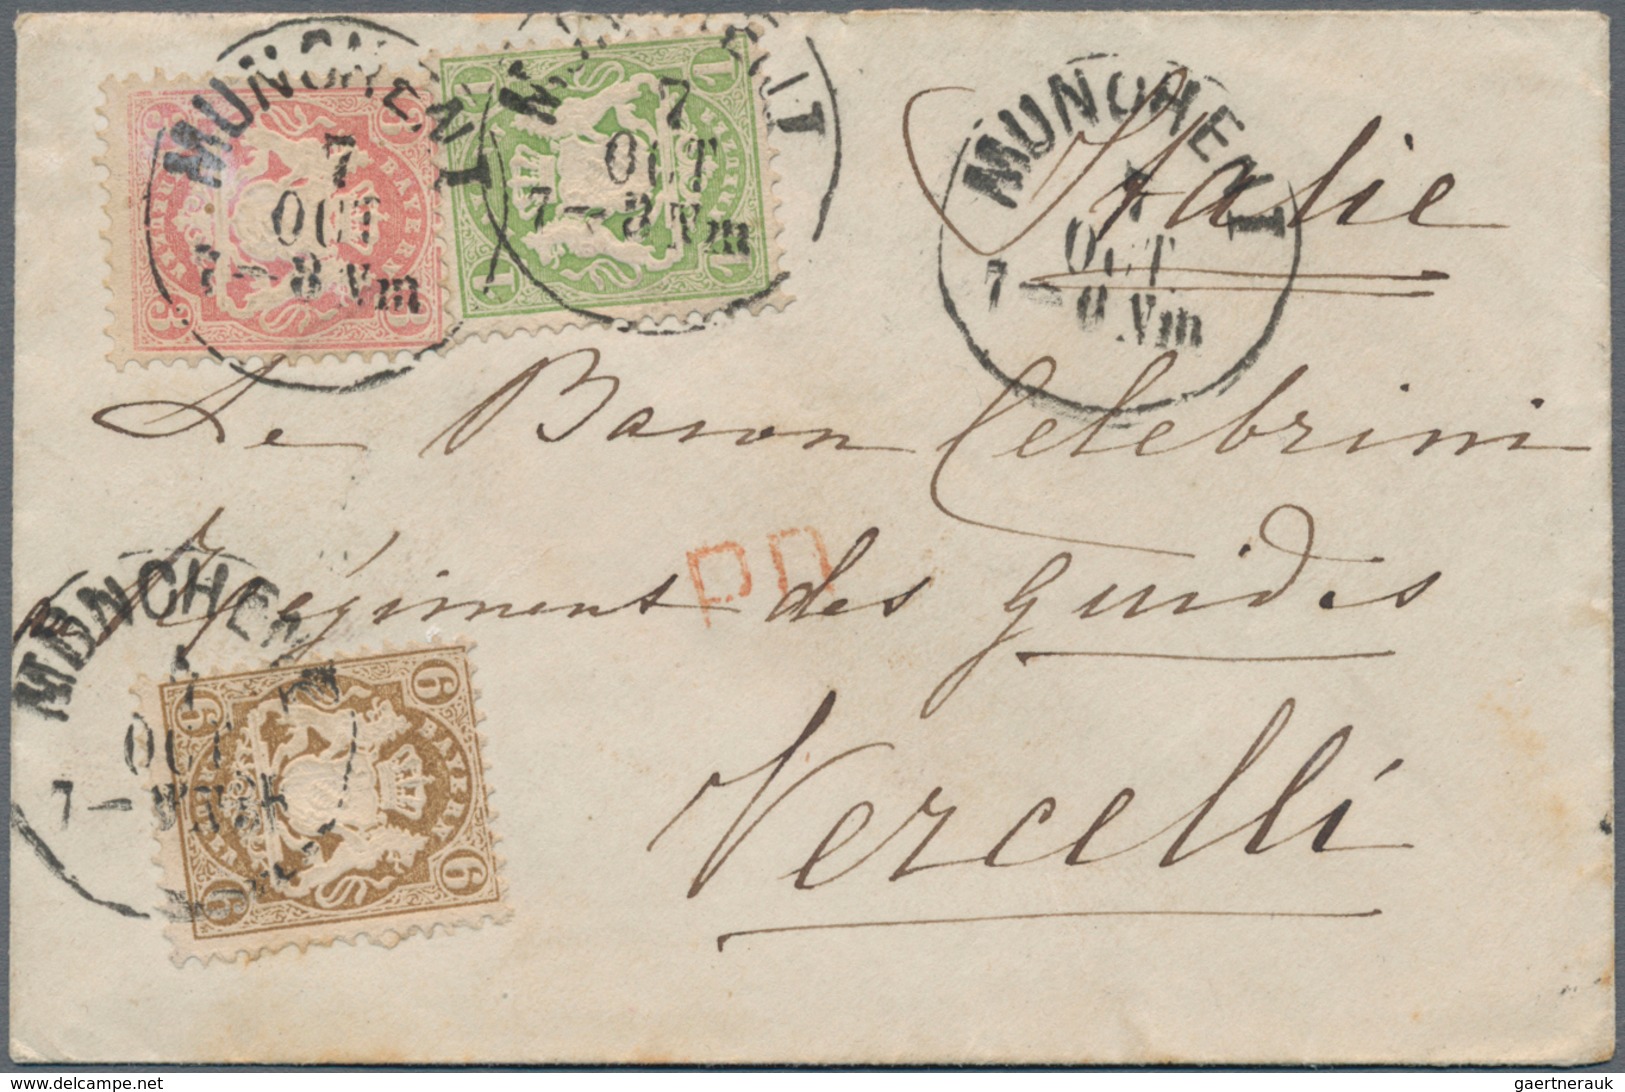 MÜNCHEN I
7
OCT
7-8 Nm
BAYERN
3
3
3
1
1
1
1
7
OCT
7-8 Nm
MÜNCHEN I
OCT
7-8 Nm
Italie
Le Baron Celebrini
Régiment des guides
Vercelli
PD
MÜNCHEN I
OCT
7-
BAYERN
6
6
6
6
www.delcampe.net
gaertnerauk